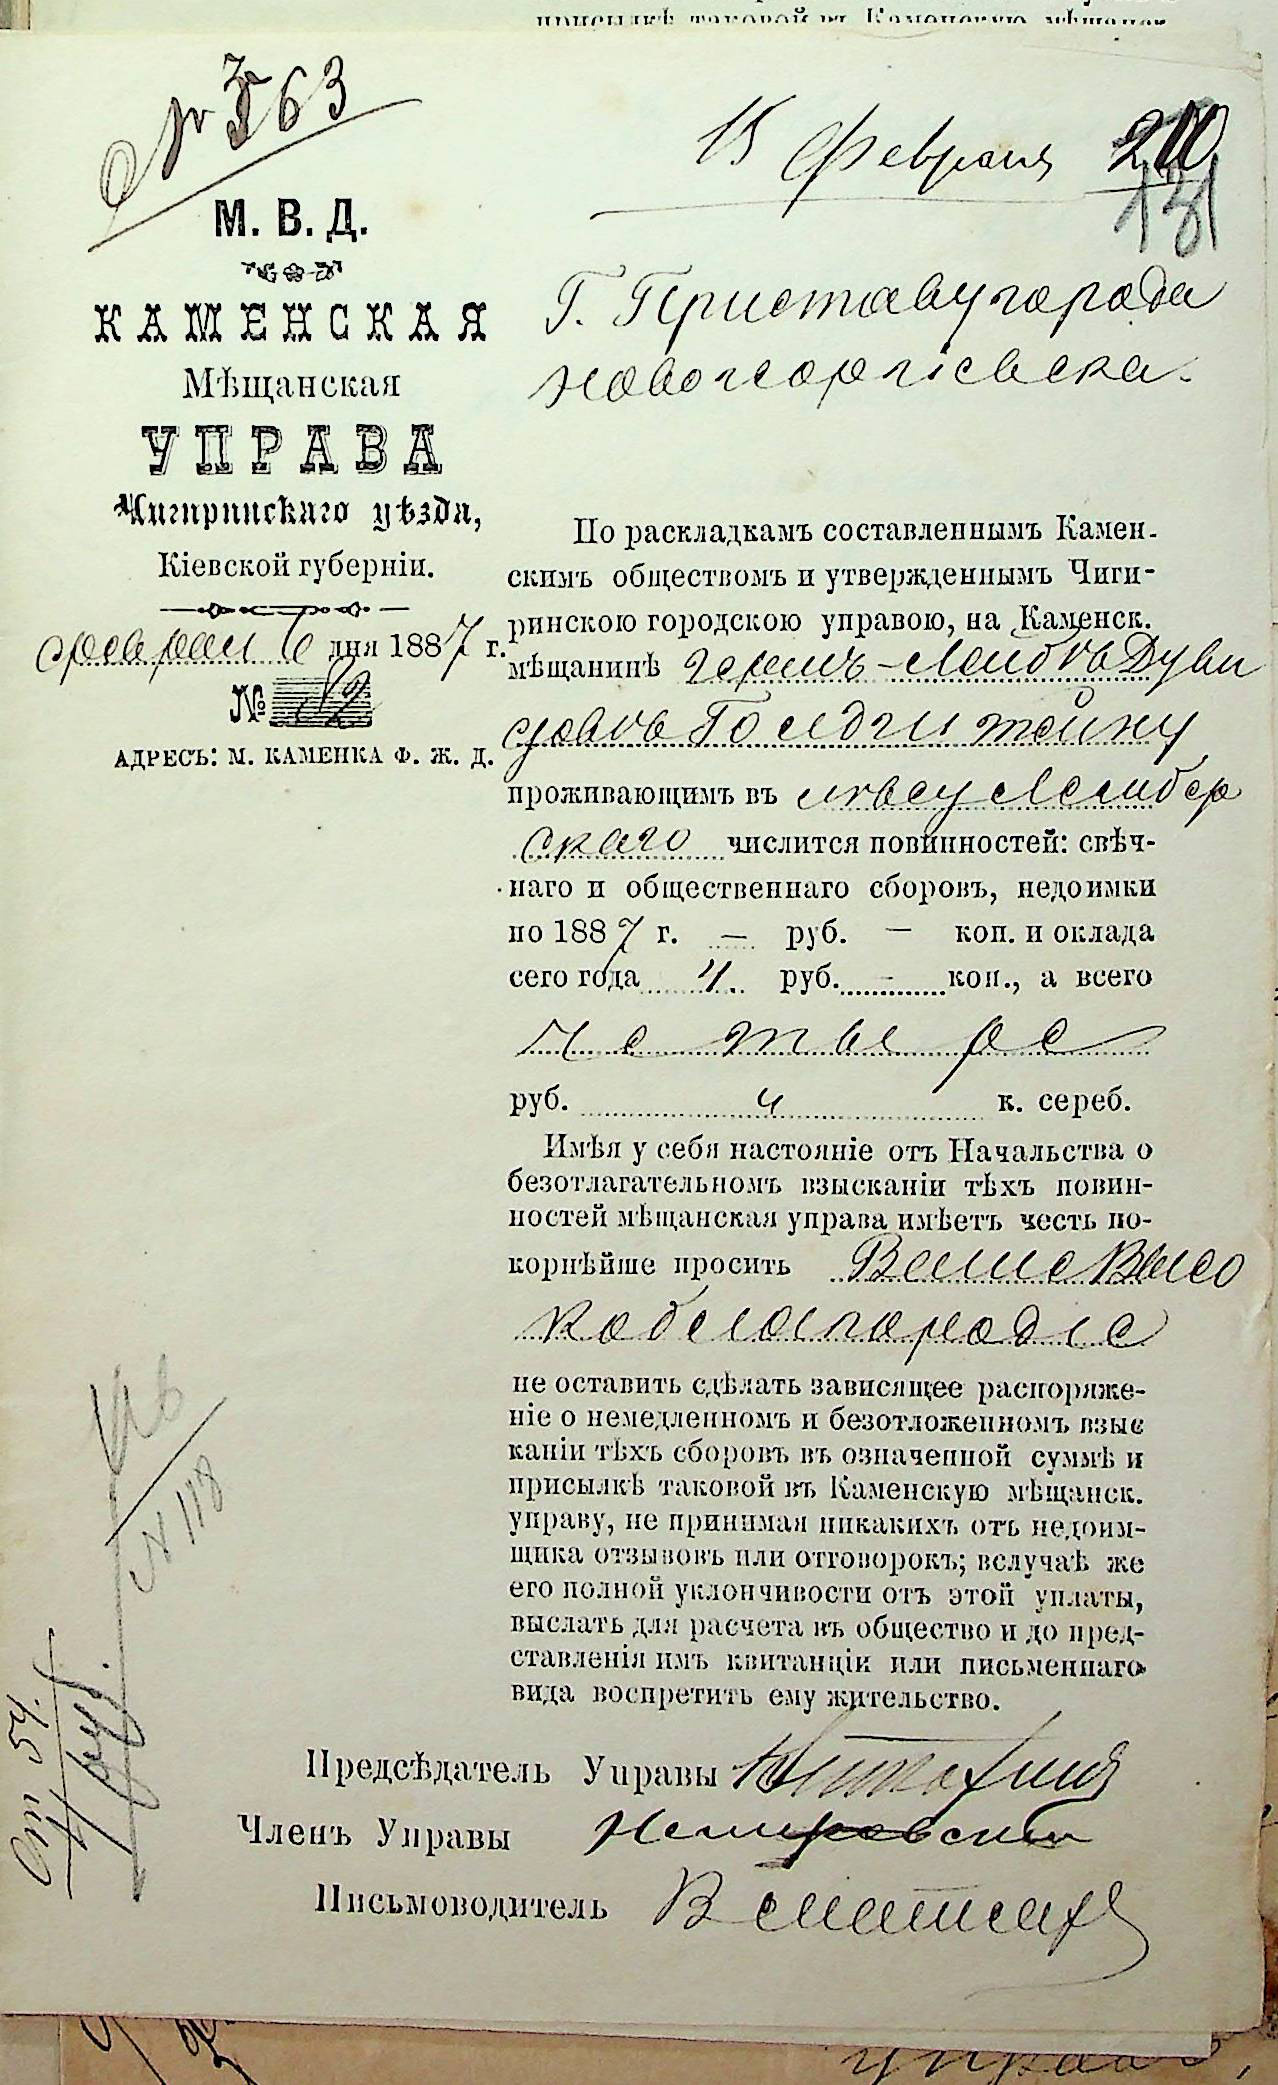 присылкѣ таковой въ Каменскую мѣщанск.
№ 563
15 Февраля
210
131
М. В. Д.
КАМЕНСКАЯ
Мѣщанская
УПРАВА
Чигиринскаго уѣзда,
Кіевской губерніи.
февраля 6 дня 1887 г.
№ 82
АДРЕСЪ: М. КАМЕНКА Ф. Ж. Д.
Г. Приставу города
Новогеоргіевска.
По раскладкамъ составленнымъ Камен-
скимъ обществомъ и утвержденнымъ Чиги-
ринскою городскою управою, на Каменск.
мѣщанинѣ Гершъ-Лейбѣ Дуви
довѣ Голдштейну
проживающимъ въ лѣсу
скаго числится повинностей: свѣч-
наго и общественнаго сборовъ, недоимки
по 1887 г. — руб. — коп. и оклада
сего года 4. руб. - коп., а всего
четыре
руб. к. сереб.
Имѣя у себя настояніе отъ Начальства о
безотлагательномъ взысканіи тѣхъ повин-
ностей мѣщанская управа имѣетъ честь по-
корнѣйше просить Ваше Высо
коблагородіе
не оставить сдѣлать зависящее распоряже-
ніе о немедленномъ и безотложенномъ взыс
каніи тѣхъ сборовъ въ означенной суммѣ и
присылкѣ таковой въ Каменскую мѣщанск.
управу, не принимая никакихъ отъ недоим-
щика отзывовъ или отговорокъ; вслучаѣ же
его полной уклончивости отъ этой уплаты,
выслать для расчета въ общество и до пред-
ставленія имъ квитанціи или письменнаго
вида воспретить ему жительство.
№ 118
Предсѣдатель Управы
Членъ Управы Немировскій
Письмоводитель